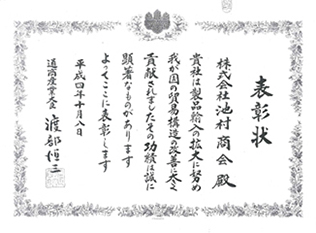 表彰状
株式会社池村商会殿
貴社は製品輸入の拡大に努め
我が国の貿易構造の改善に大きく
貢献されましたその功績は誠に
顕著なものがあります
よってここに表彰します
平成四年十月八日
通商産業大臣 渡部恒三